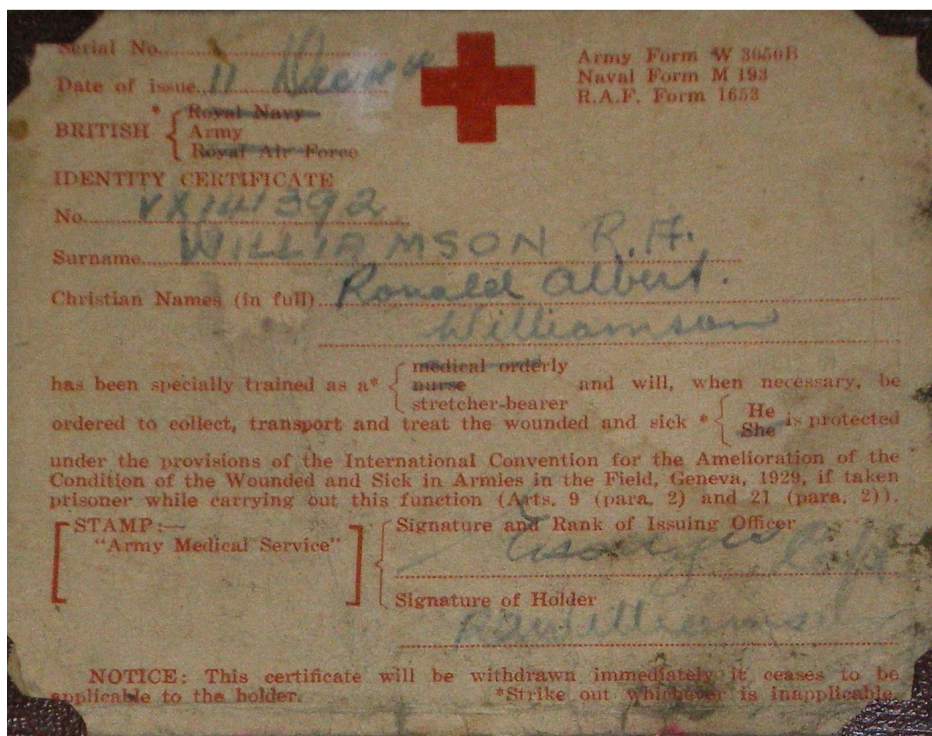 Serial No.
Army Form W 3050B
Naval Form M 193
R.A.F. Form 1653
Date of issue 11
BRITISH * { Royal Navy
Army
Royal Air Force
IDENTITY CERTIFICATE
No. VX141392
Surname WILLIAMSON R.A.
Christian Names (in full) Ronald Albert.
Williamson
has been specially trained as a* { medical orderly
nurse
stretcher-bearer
and will, when necessary, be
ordered to collect, transport and treat the wounded and sick * { He
She
is protected
under the provisions of the International Convention for the Amelioration of the
Condition of the Wounded and Sick in Armies in the Field, Geneva, 1929, if taken
prisoner while carrying out this function (Arts. 9 (para. 2) and 21 (para. 2)).
[ STAMP:—
"Army Medical Service" ]
Signature and Rank of Issuing Officer
Capt
Signature of Holder
RAWilliamson
NOTICE: This certificate will be withdrawn immediately it ceases to be
applicable to the holder. *Strike out whichever is inapplicable.